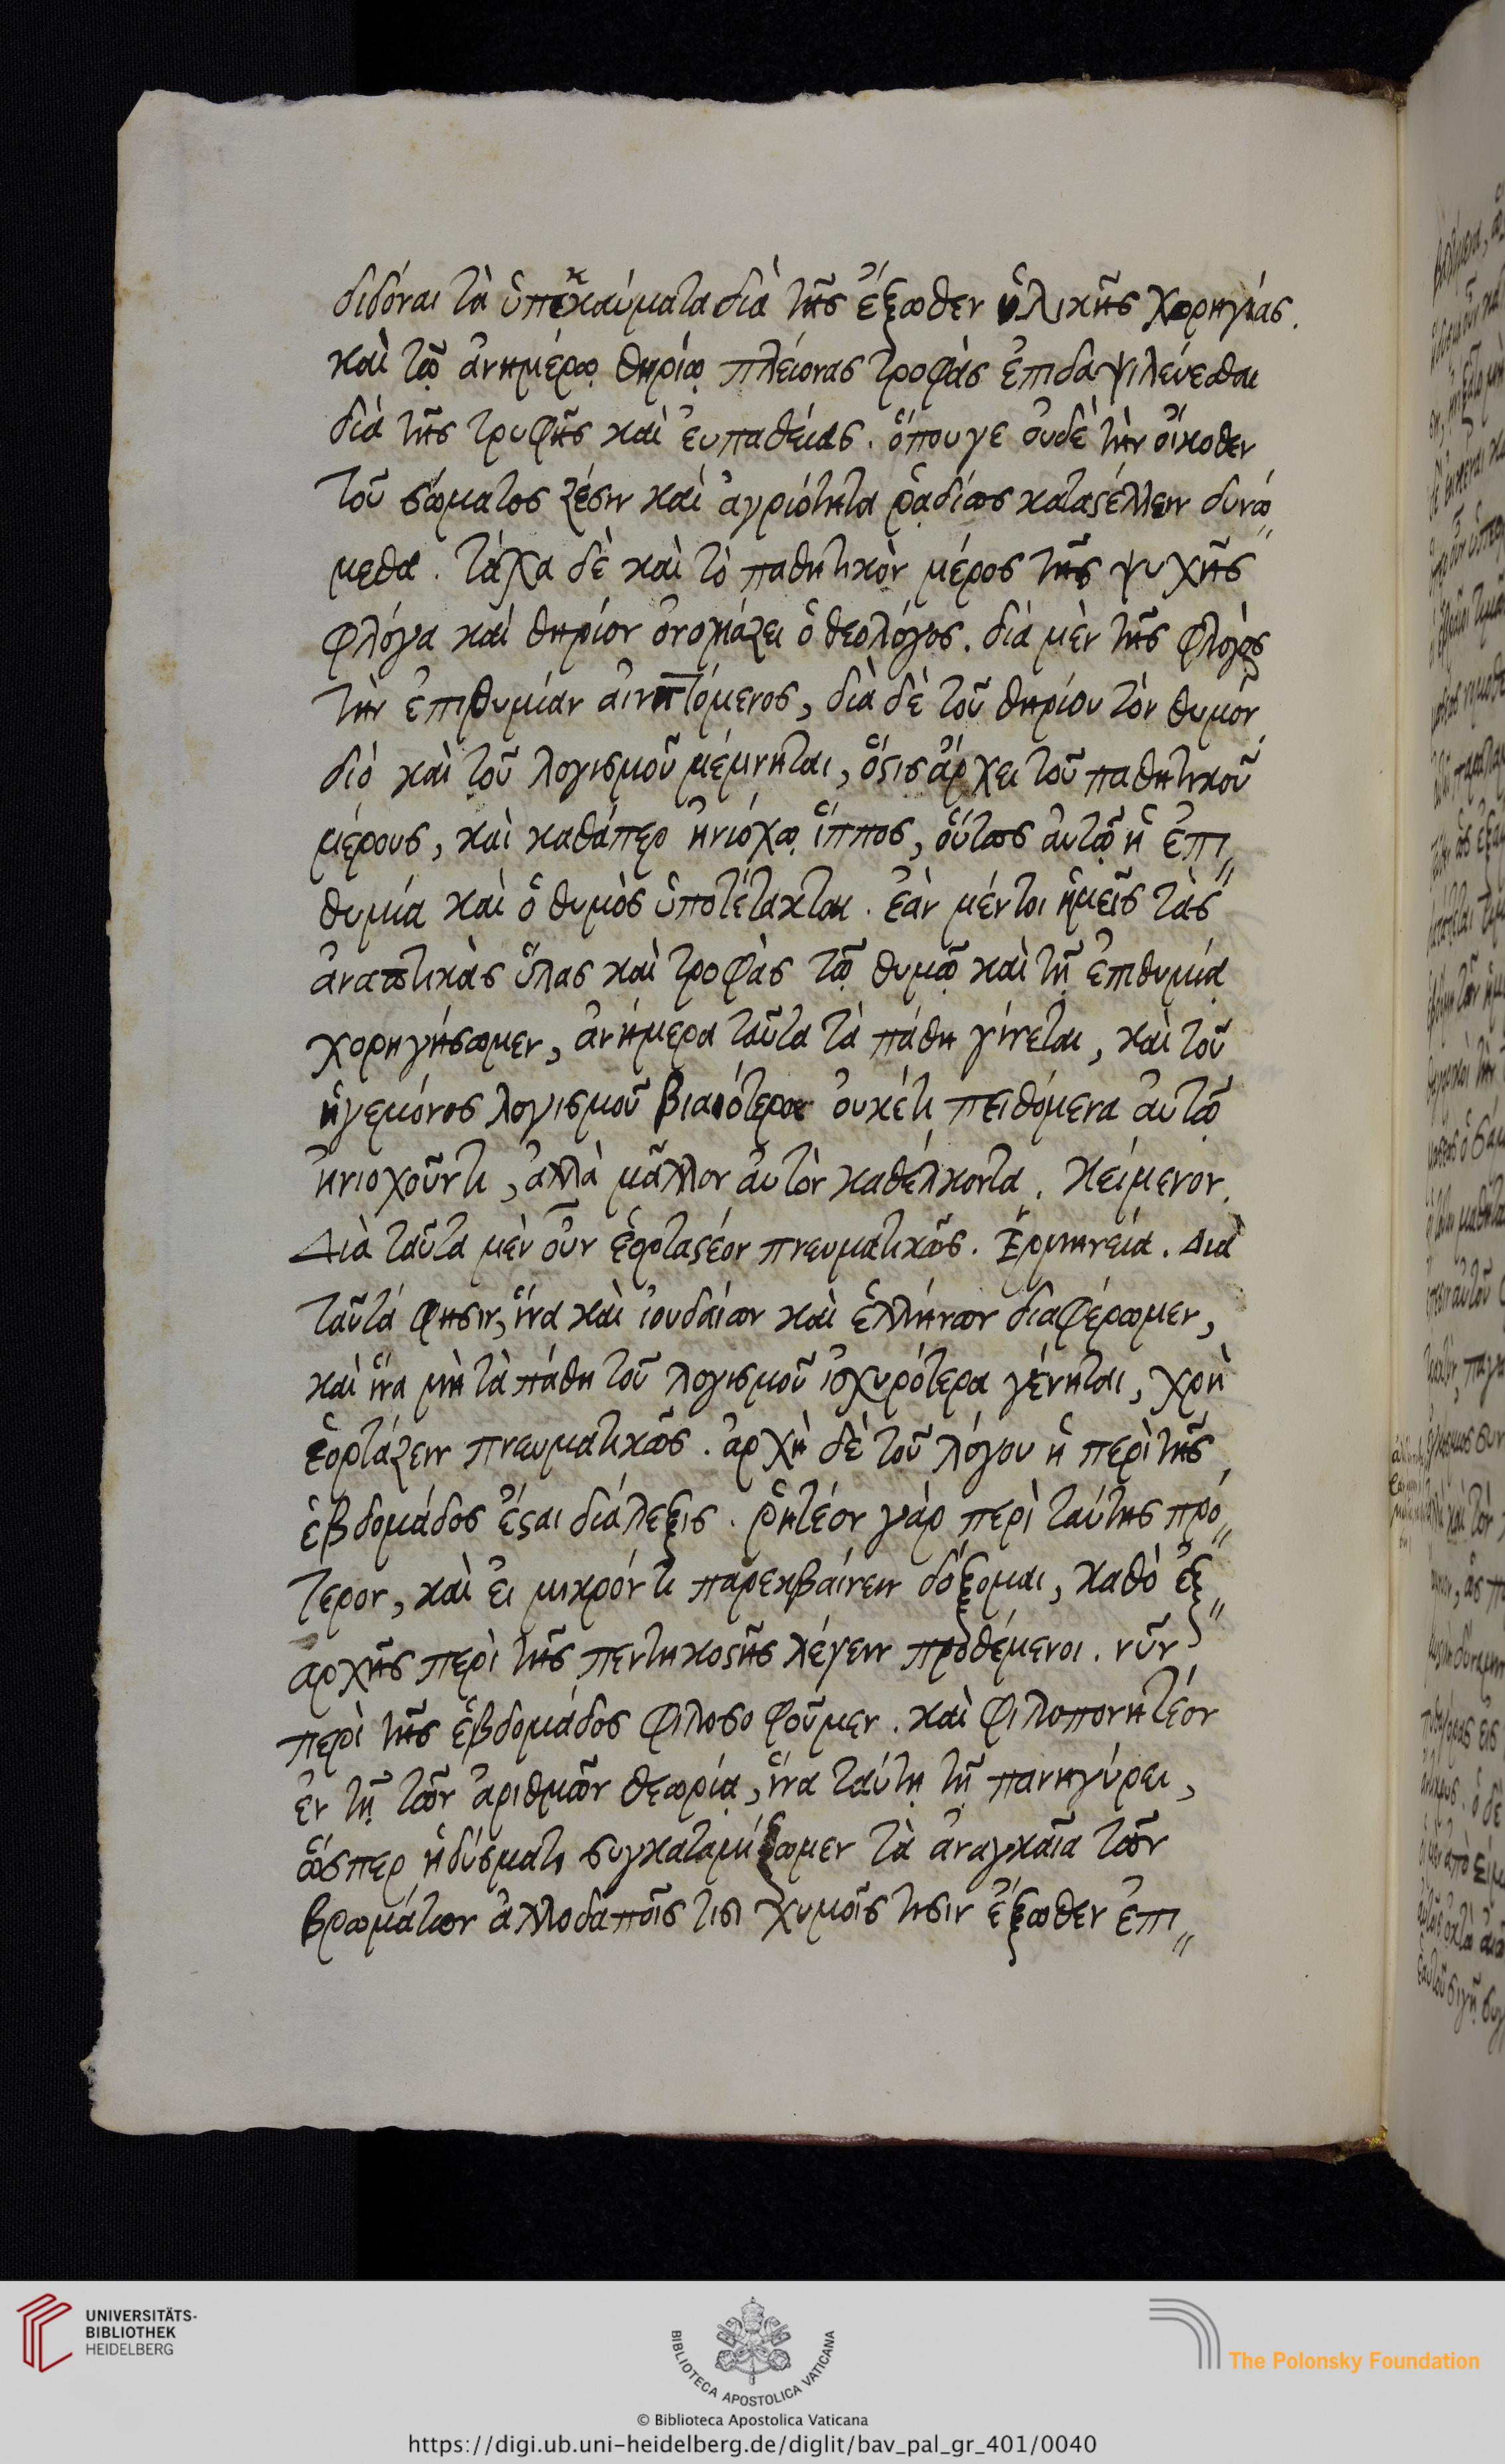 διδόναι τὰ ὑπεκκαύματα διὰ τῆς ἔξωθεν ὑλικῆς χορηγίας.
καὶ τῷ ἀνημέρῳ θηρίῳ πλείονας τροφὰς ἐπιδαψιλεύεσθαι
διὰ τῆς τρυφῆς καὶ εὐπαθείας. ὅπουγε οὐδὲ τὴν οἴκοθεν
τοῦ σώματος ζέσιν καὶ ἀγριότητα ῥᾳδίως καταστέλλειν δυνά„
μεθα. τάχα δὲ καὶ τὸ παθητικὸν μέρος τῆς ψυχῆς
φλόγα καὶ θηρίον ὀνομάζει ὁ θεολόγος. διὰ μὲν τῆς φλογὸς
τὴν ἐπιθυμίαν αἰνιττόμενος, διὰ δὲ τοῦ θηρίου τὸν θυμόν.
διὸ καὶ τοῦ λογισμοῦ μέμνηται, ὅστις ἄρχει τοῦ παθητικοῦ
μέρους, καὶ καθάπερ ἡνιόχῳ ἵππος, οὕτως αὐτῷ ἡ ἐπι„
θυμία καὶ ὁ θυμὸς ὑποτέτακται. ἐὰν μέντοι ἡμεῖς τὰς
ἀναπτικὰς ὕλας καὶ τροφὰς τῷ θυμῷ καὶ τῇ ἐπιθυμίᾳ
χορηγήσωμεν, ἀνήμερα ταῦτα τὰ πάθη γίνεται, καὶ τοῦ
ἡγεμόνος λογισμοῦ βιαιότερα οὐκέτι πειθόμενα αὐτῷ
ἡνιοχοῦντι, ἀλλὰ μᾶλλον αὐτὸν καθέλκοντα. Κείμενον.
Διὰ ταῦτα μὲν οὖν ἑορταστέον πνευματικῶς. Ἑρμηνεία. Διὰ
ταῦτά φησιν, ἵνα καὶ ἰουδαίων καὶ ἑλλήνων διαφέρωμεν,
καὶ ἵνα μὴ τὰ πάθη τοῦ λογισμοῦ ἰσχυρότερα γένηται, χρὴ
ἑορτάζειν πνευματικῶς. ἀρχὴ δὲ τοῦ λόγου ἡ περὶ τῆς
ἑβδομάδος ἔσται διάλεξις. ῥητέον γὰρ περὶ ταύτης πρό„
τερον, καὶ εἰ μικρόν τι παρεκβαίνειν δόξομαι, καθὸ ἐξ„
αρχῆς περὶ τῆς πεντηκοστῆς λέγειν προθέμενοι. νῦν
περὶ τῆς ἑβδομάδος φιλοσοφοῦμεν. καὶ φιλοπονητέον
ἐν τῇ τῶν ἀριθμῶν θεωρίᾳ, ἵνα ταύτῃ τῇ πανηγύρει,
ὥσπερ ἡδύσματι συγκαταμίξωμεν τὰ ἀναγκαῖα τῶν
βρωμάτων ἀλλοδαποῖς τισι χυμοῖς τισιν ἔξωθεν ἐπι„
UNIVERSITÄTS-
BIBLIOTHEK
HEIDELBERG
BIBLIOTECA APOSTOLICA VATICANA
The Polonsky Foundation
© Biblioteca Apostolica Vaticana
https://digi.ub.uni-heidelberg.de/diglit/bav_pal_gr_401/0040